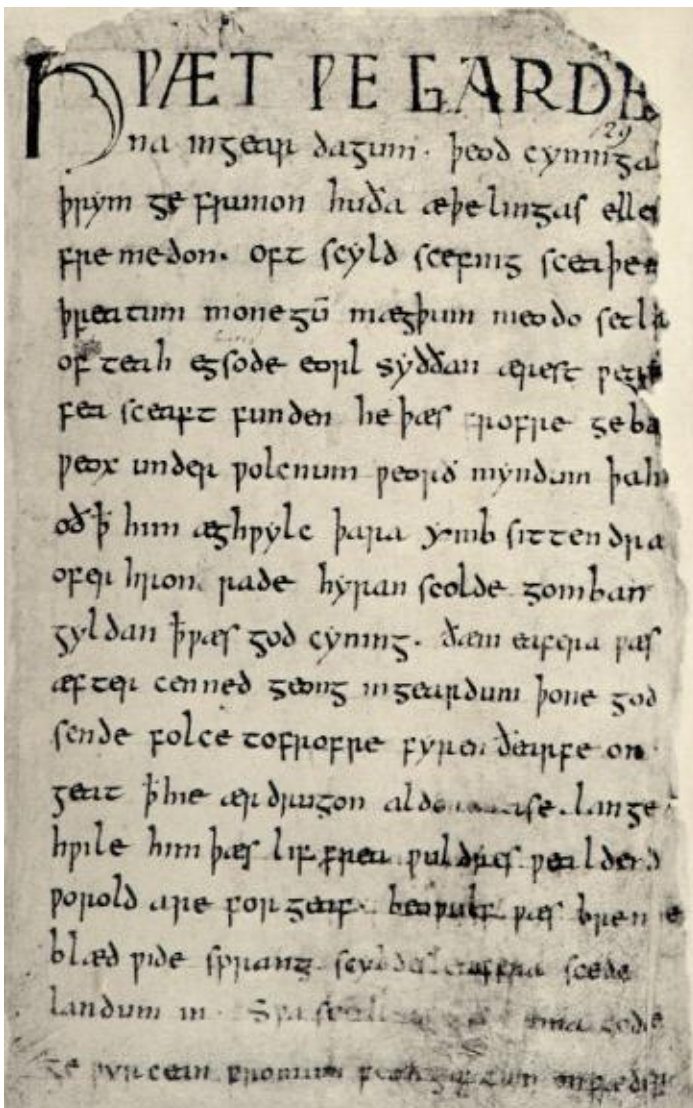 HǷÆT ǷE GARDE
129
na ingear dagum. þeod cyninga
þrym ge frunon huða æþelingas elle
fre medon. oft scyld scefing sceaþe
þreatum monegū mægþum meodo setla
of teah egsode eorl syððan ærest ƿear
fea sceaft funden he þæs frofre geba
ƿeox under ƿolcnum ƿeorð myndum þah
oð þꝥ him æghƿylc þara ymb sittendra
ofer hron rade hyran scolde gomban
gyldan ꝥ ƿæs god cyning. ðæm eafera ƿæs
æfter cenned geong ingeardum þone god
sende folce tofrofre fyren ðearfe on
geat ꝥ hie ær drugon aldor ase. lange
hƿile him þæs lif frea ƿuldres ƿealdend
ƿorold are for geaf. beoƿulf ƿæs breme
blæd ƿide sprang scyldes eafera scede
landum in. Sƿa sceal ma gode
ge ƿyrcean fromum feoh giftum onfæder